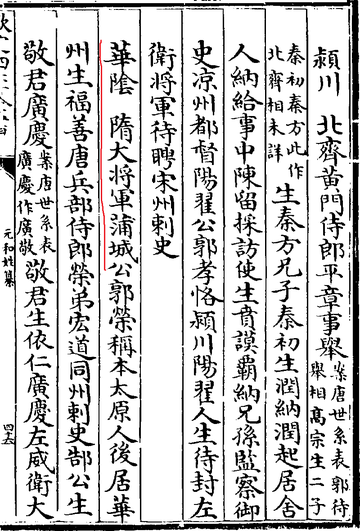 潁川　北齊黄門侍郎平章事舉案唐世系表郭待舉相髙宗生二子
秦初秦方此作北齊相未詳生秦方兄子秦初生潤納潤起居舍
人納給事中陳留採訪使生賁謨覇納兄孫監察御
史凉州都督陽翟公郭孝恪潁川陽翟人生待封左
衛將軍待聘宋州刺史
華陰　隋大將軍蒲城公郭榮稱本太原人後居華
州生福善唐兵部侍郎榮弟宏道同州刺史郜公生
敬君廣慶案唐世系表廣慶作廣敬敬君生依仁廣慶左威衛大
元和姓纂
四十五